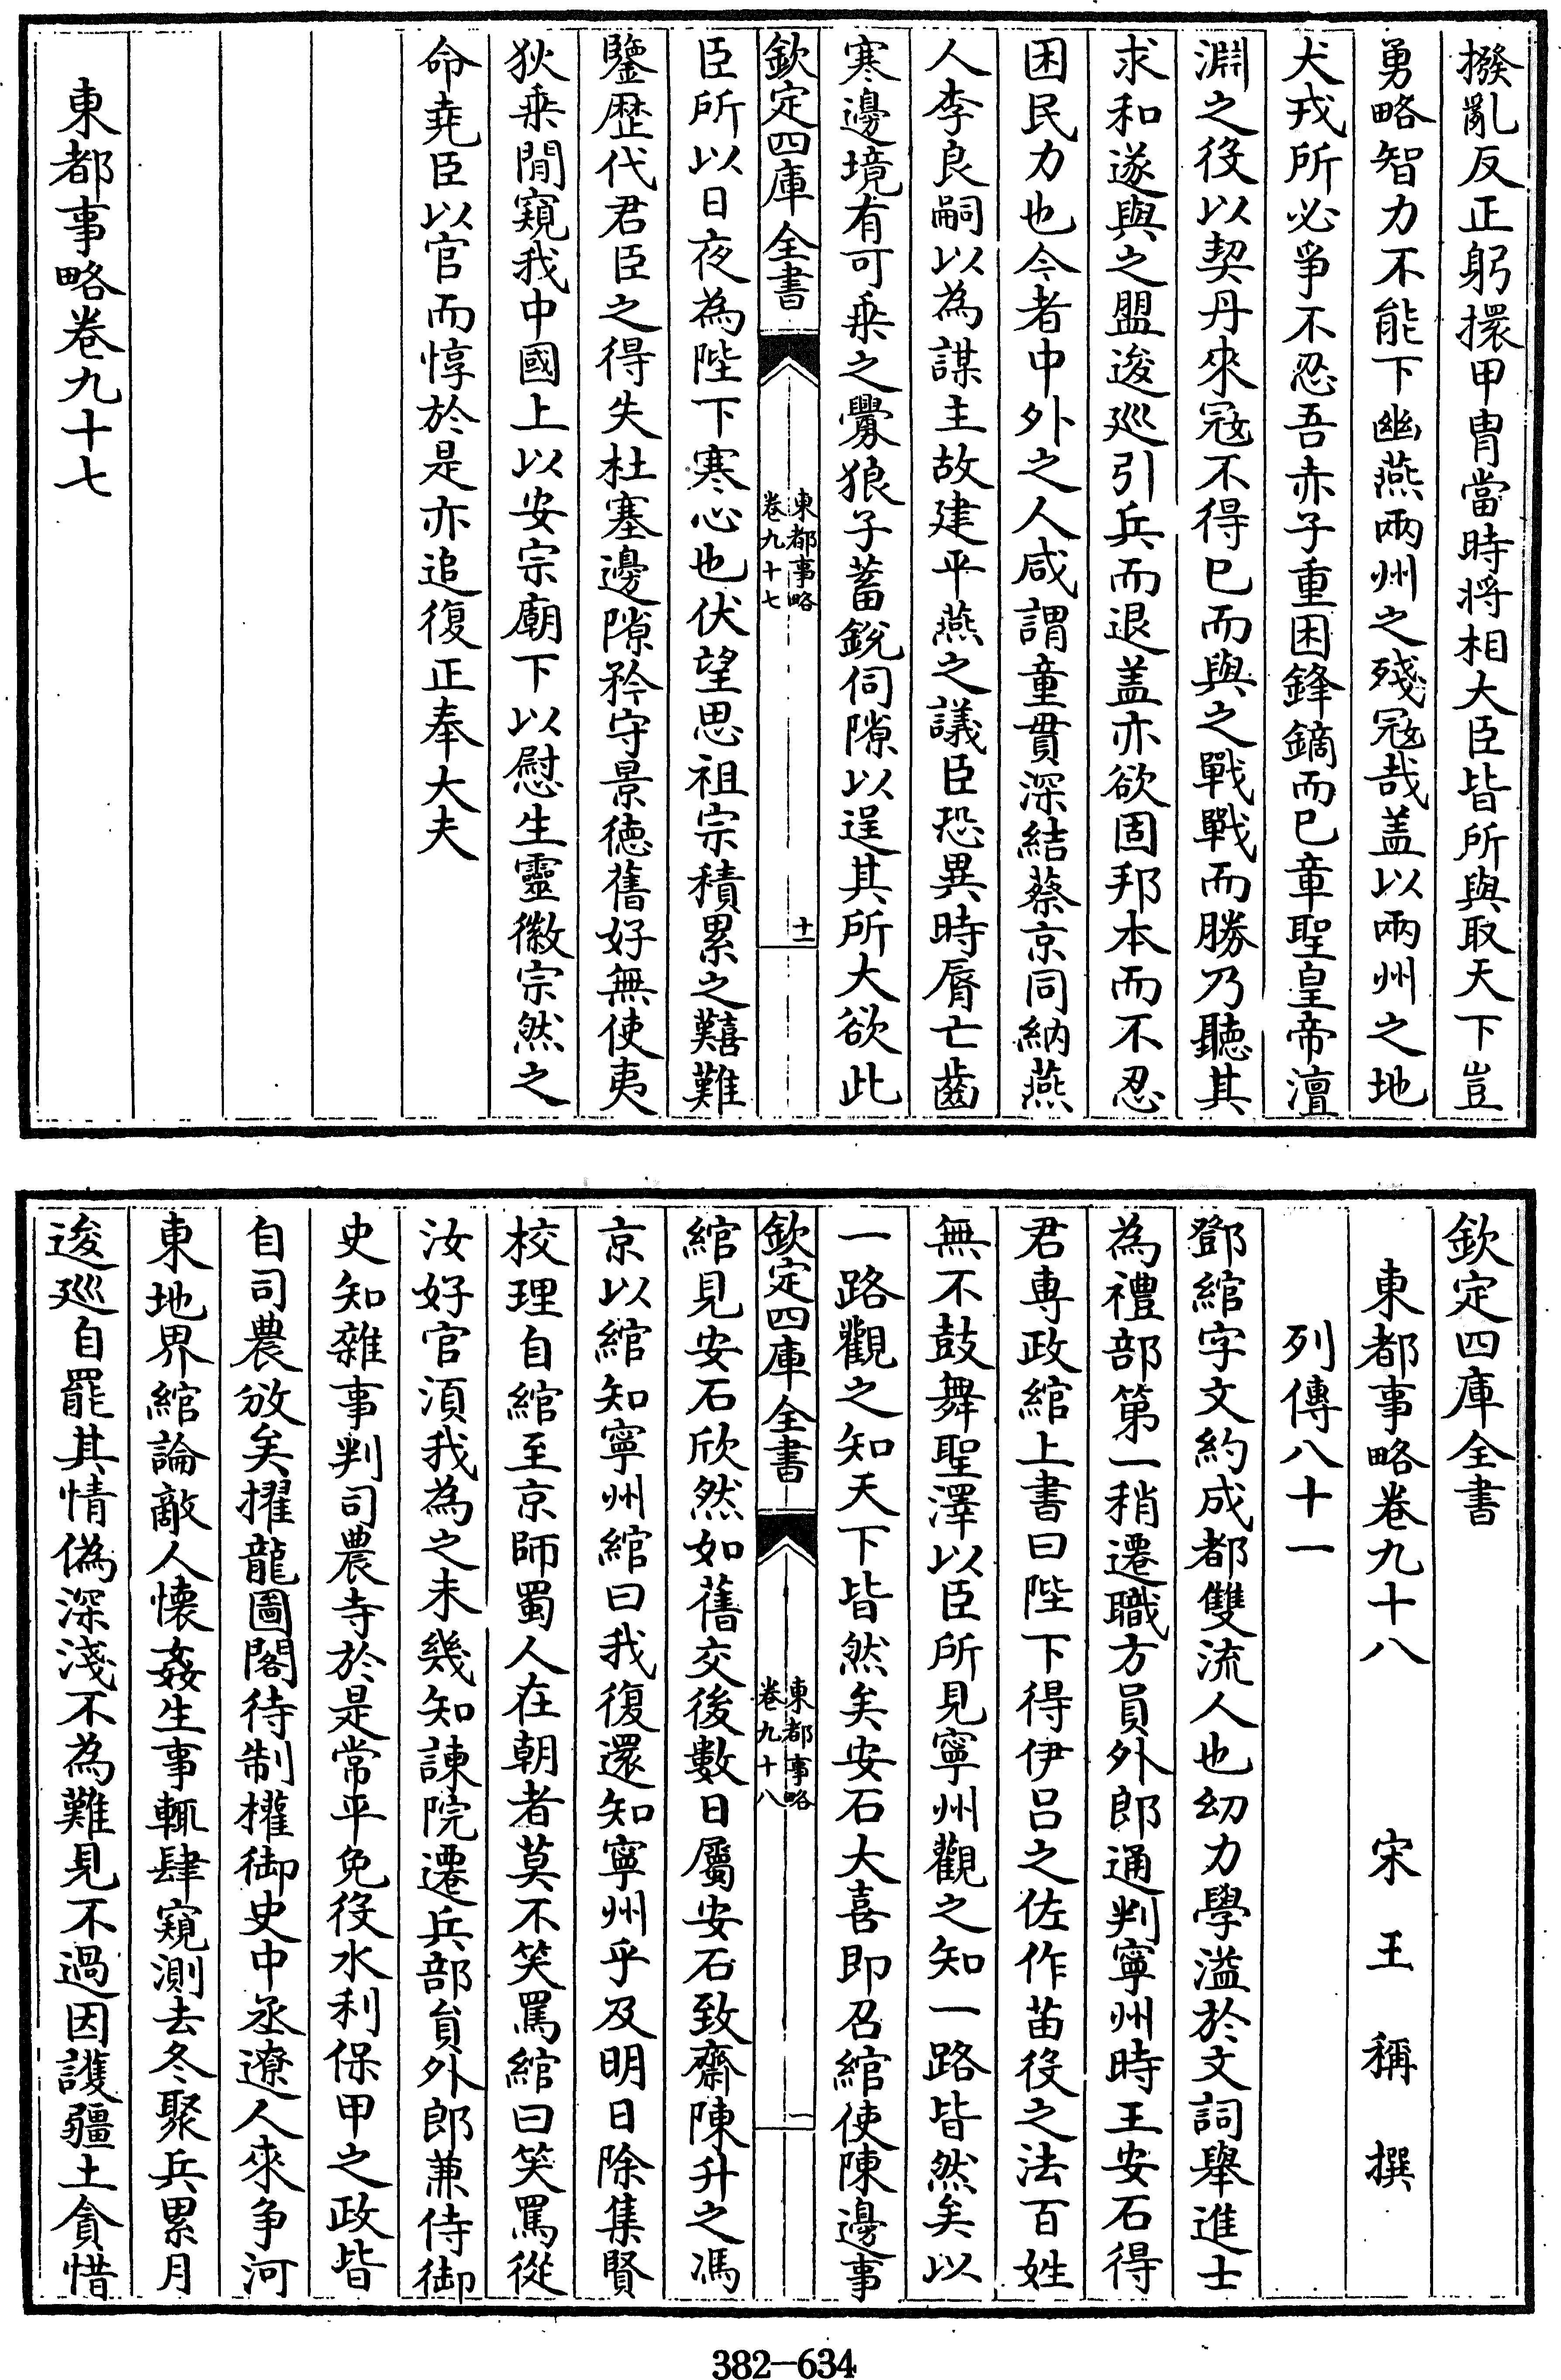 撥亂反正躬擐甲胄當時將相大臣皆所與取天下豈
勇略智力不能下幽燕兩州之殘冦哉盖以兩州之地
犬戎所必爭不忍吾赤子重困鋒鏑而已章聖皇帝澶
淵之役以契丹來冦不得已而與之戰戰而勝乃聽其
求和遂與之盟逡巡引兵而退盖亦欲固邦本而不忍
困民力也今者中外之人咸謂童貫深結蔡京同納燕
人李良嗣以為謀主故建平燕之議臣恐異時脣亡齒
寒邊境有可乗之釁狼子蓄銳伺隙以逞其所大欲此
欽定四庫全書
東都事略
卷九十七
十一
臣所以日夜為陛下寒心也伏望思祖宗積累之囏難
鑒歴代君臣之得失杜塞邊隙矜守景徳舊好無使夷
狄乗閒窺我中國上以安宗廟下以慰生靈徽宗然之
命堯臣以官而惇於是亦追復正奉大夫
東都事略卷九十七
欽定四庫全書
東都事略卷九十八
宋王稱撰
列傳八十一
鄧綰字文約成都雙流人也幼力學溢於文詞舉進士
為禮部第一稍遷職方員外郎通判寧州時王安石得
君專政綰上書曰陛下得伊吕之佐作苗役之法百姓
無不鼓舞聖澤以臣所見寧州觀之知一路皆然矣以
一路觀之知天下皆然矣安石大喜即召綰使陳邊事
欽定四庫全書
東都事略
卷九十八
一
綰見安石欣然如舊交後數日屬安石致齋陳升之馮
京以綰知寧州綰曰我復還知寧州乎及明日除集賢
校理自綰至京師蜀人在朝者莫不笑罵綰曰笑罵從
汝好官須我為之未幾知諫院遷兵部員外郎兼侍御
史知雜事判司農寺於是常平免役水利保甲之政皆
自司農攽矣擢龍圖閣待制權御史中丞遼人來爭河
東地界綰論敵人懐姦生事輒肆窺測去冬聚兵累月
逡巡自罷其情偽深淺不為難見不過因護疆土貪惜
382—634